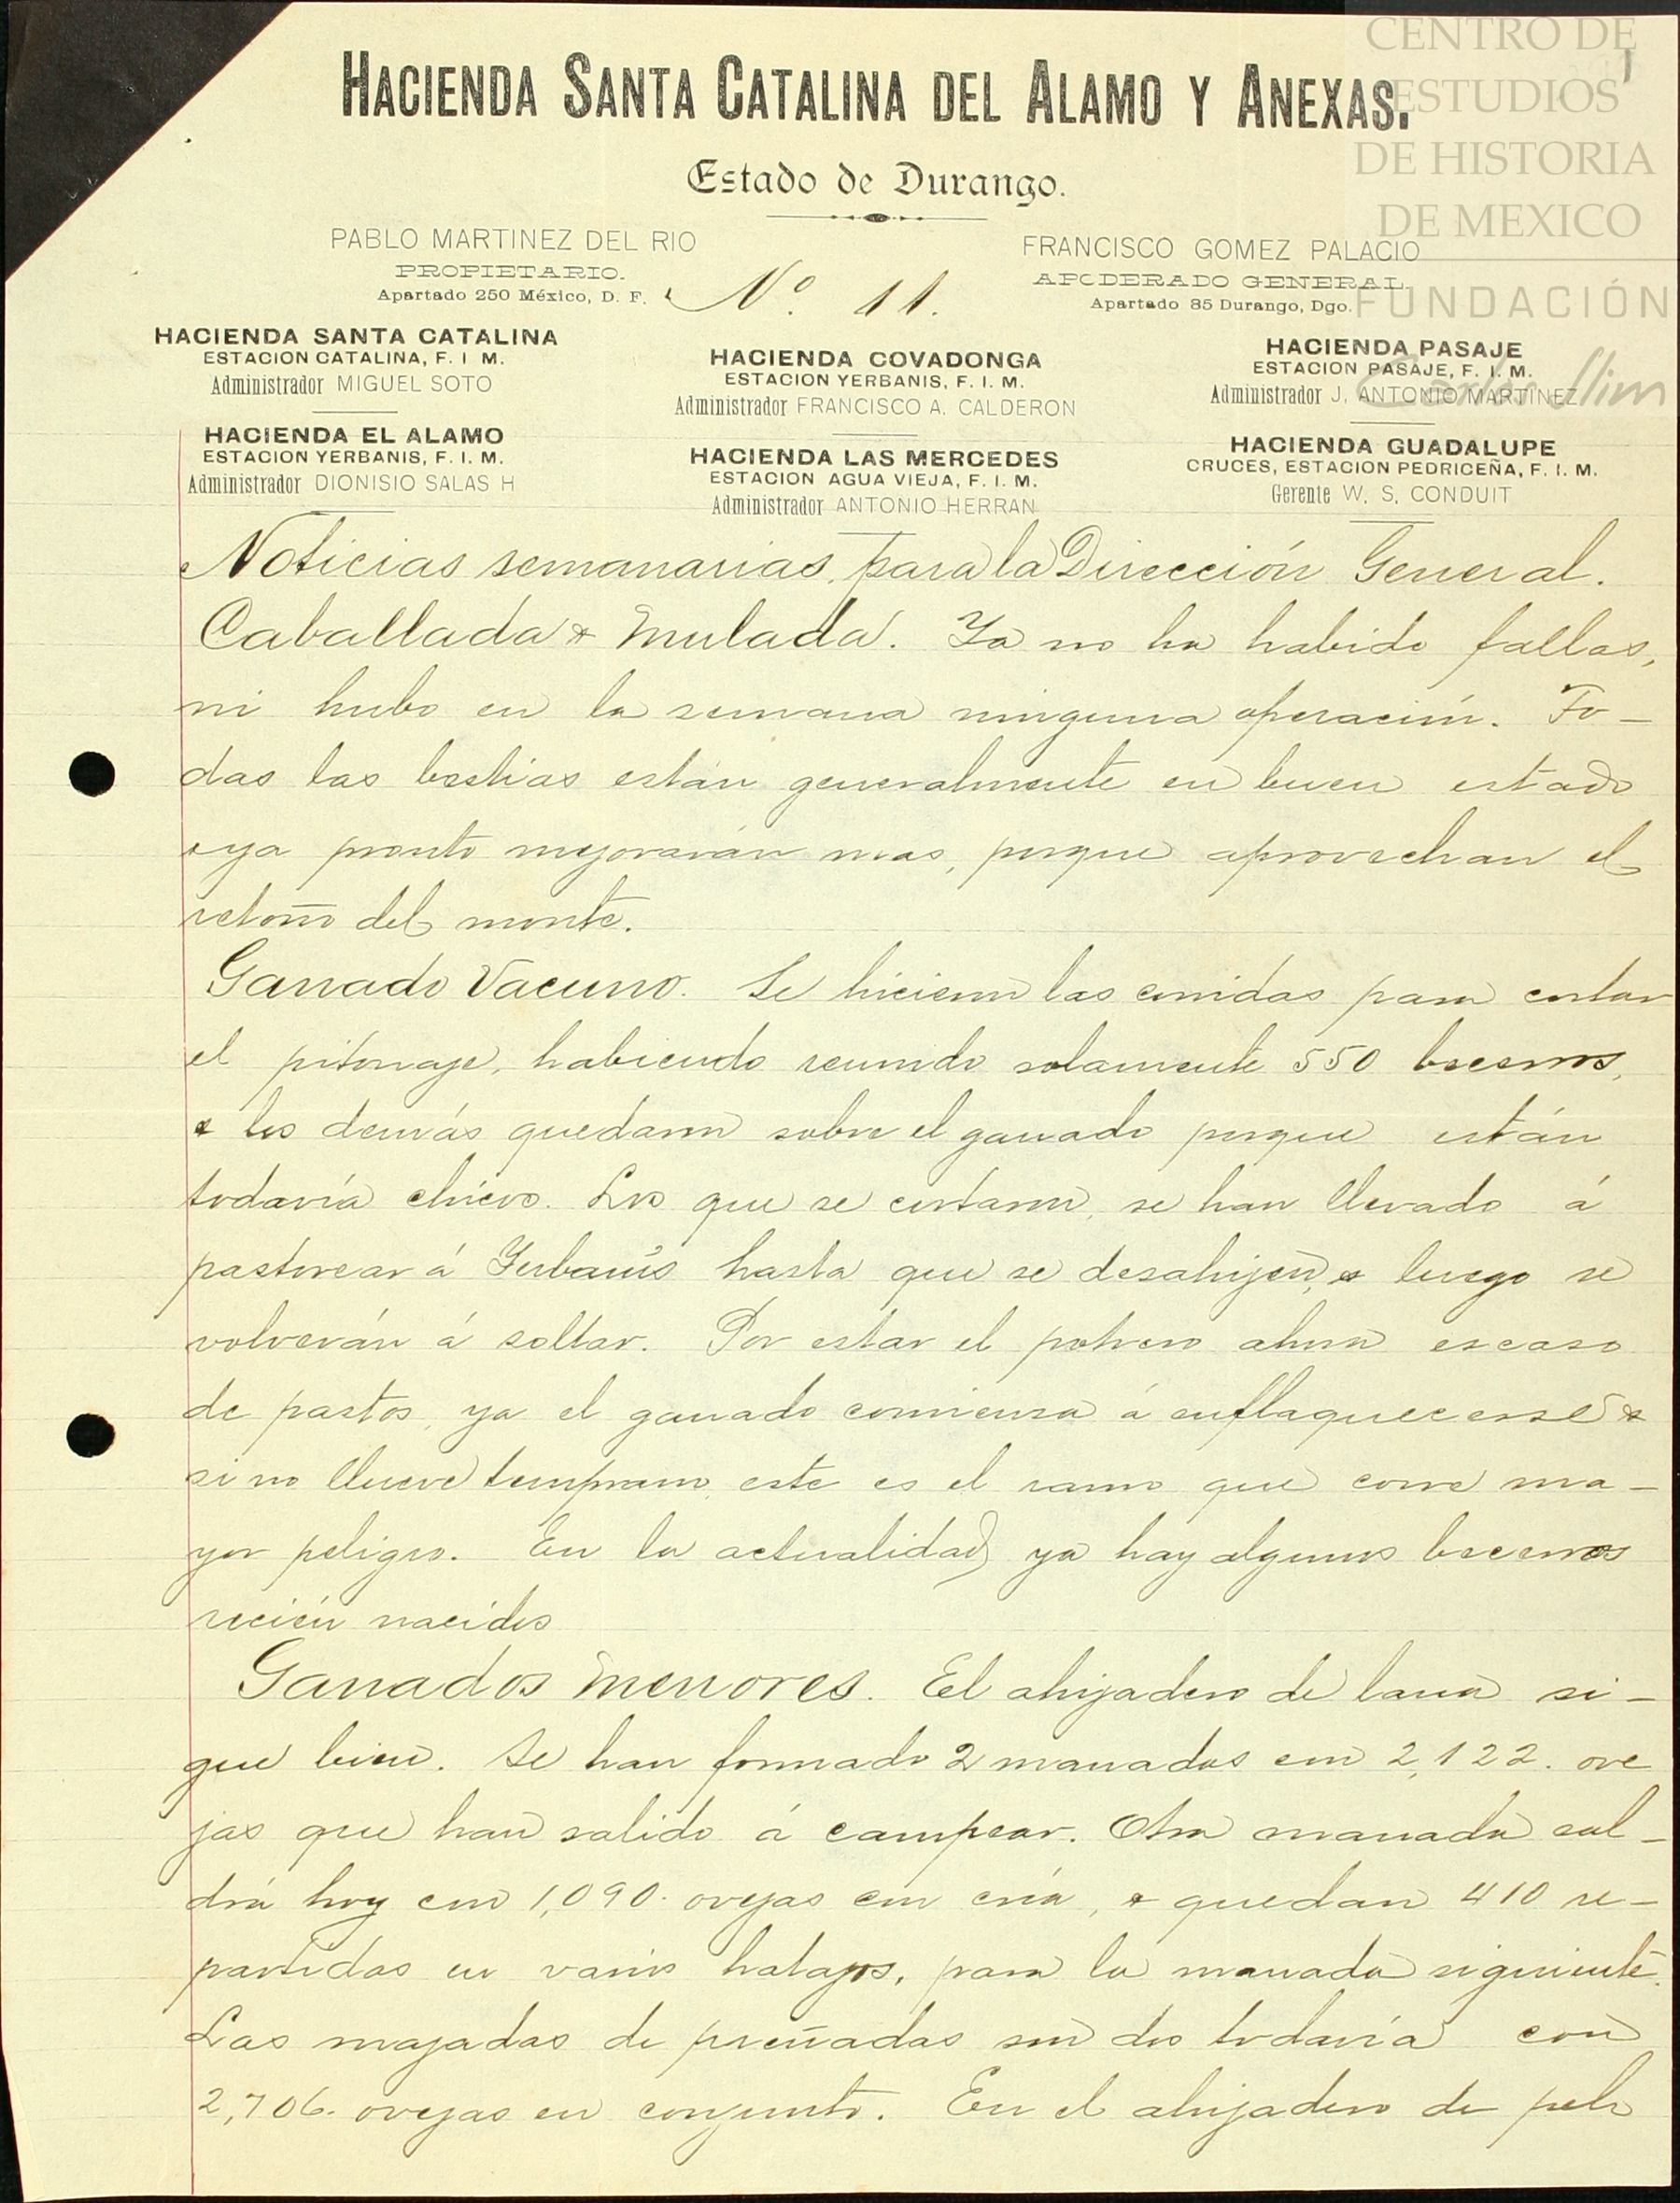 CENTRO DE
ESTUDIOS
DE HISTORIA
DE MEXICO
FUNDACIÓN
Carlos Slim
HACIENDA SANTA CATALINA DEL ALAMO Y ANEXAS.
Estado de Durango.
PABLO MARTINEZ DEL RIO
PROPIETARIO.
Apartado 250 México, D. F.
Nº. 11.
FRANCISCO GOMEZ PALACIO
APODERADO GENERAL
Apartado 85 Durango, Dgo.
HACIENDA SANTA CATALINA
ESTACION CATALINA, F. I M.
Administrador MIGUEL SOTO
HACIENDA COVADONGA
ESTACION YERBANIS, F. I. M.
Administrador FRANCISCO A. CALDERON
HACIENDA PASAJE
ESTACION PASAJE, F. I. M.
Administrador J. ANTONIO MARTINEZ
HACIENDA EL ALAMO
ESTACION YERBANIS, F. I. M.
Administrador DIONISIO SALAS H
HACIENDA LAS MERCEDES
ESTACION AGUA VIEJA, F. I. M.
Administrador ANTONIO HERRAN
HACIENDA GUADALUPE
CRUCES, ESTACION PEDRICEÑA, F. I. M.
Gerente W. S. CONDUIT
Noticias semanarias, para la Dirección General.
Caballada & Mulada. Ya no ha habido fallas,
ni hubo en la semana ninguna operación. To-
das las bestias están generalmente en buen estado
& ya pronto mejorarán mas, porque aprovechan el
retoño del monte.
Ganado Vacuno. Se hicieron las corridas para cortar
el pitonaje, habiendo reunido solamente 550 becerros,
& los demás quedaron sobre el ganado porque están
todavía chicos. Los que se cortaron, se han llevado á
pastorear á Yerbanís hasta que se desahijen, & luego se
volverán á soltar. Por estar el potrero ahora escaso
de pastos, ya el ganado comienza á enflaquecerse &
si no llueve temprano, este es el ramo que corre ma-
yor peligro. En la actualidad ya hay algunos becerros
recién nacidos
Ganados Menores. El ahijadero de lana si-
gue bien. Se han formado 2 manadas con 2,122. ove
jas que han salido á campear. Otra manada sal-
drá hoy con 1,090. ovejas con cría, & quedan 410 re-
partidas en varios hatajos, para la manada siguiente.
Las majadas de preñadas son dos todavía con
2,706. ovejas en conjunto. En el ahijadero de pelo